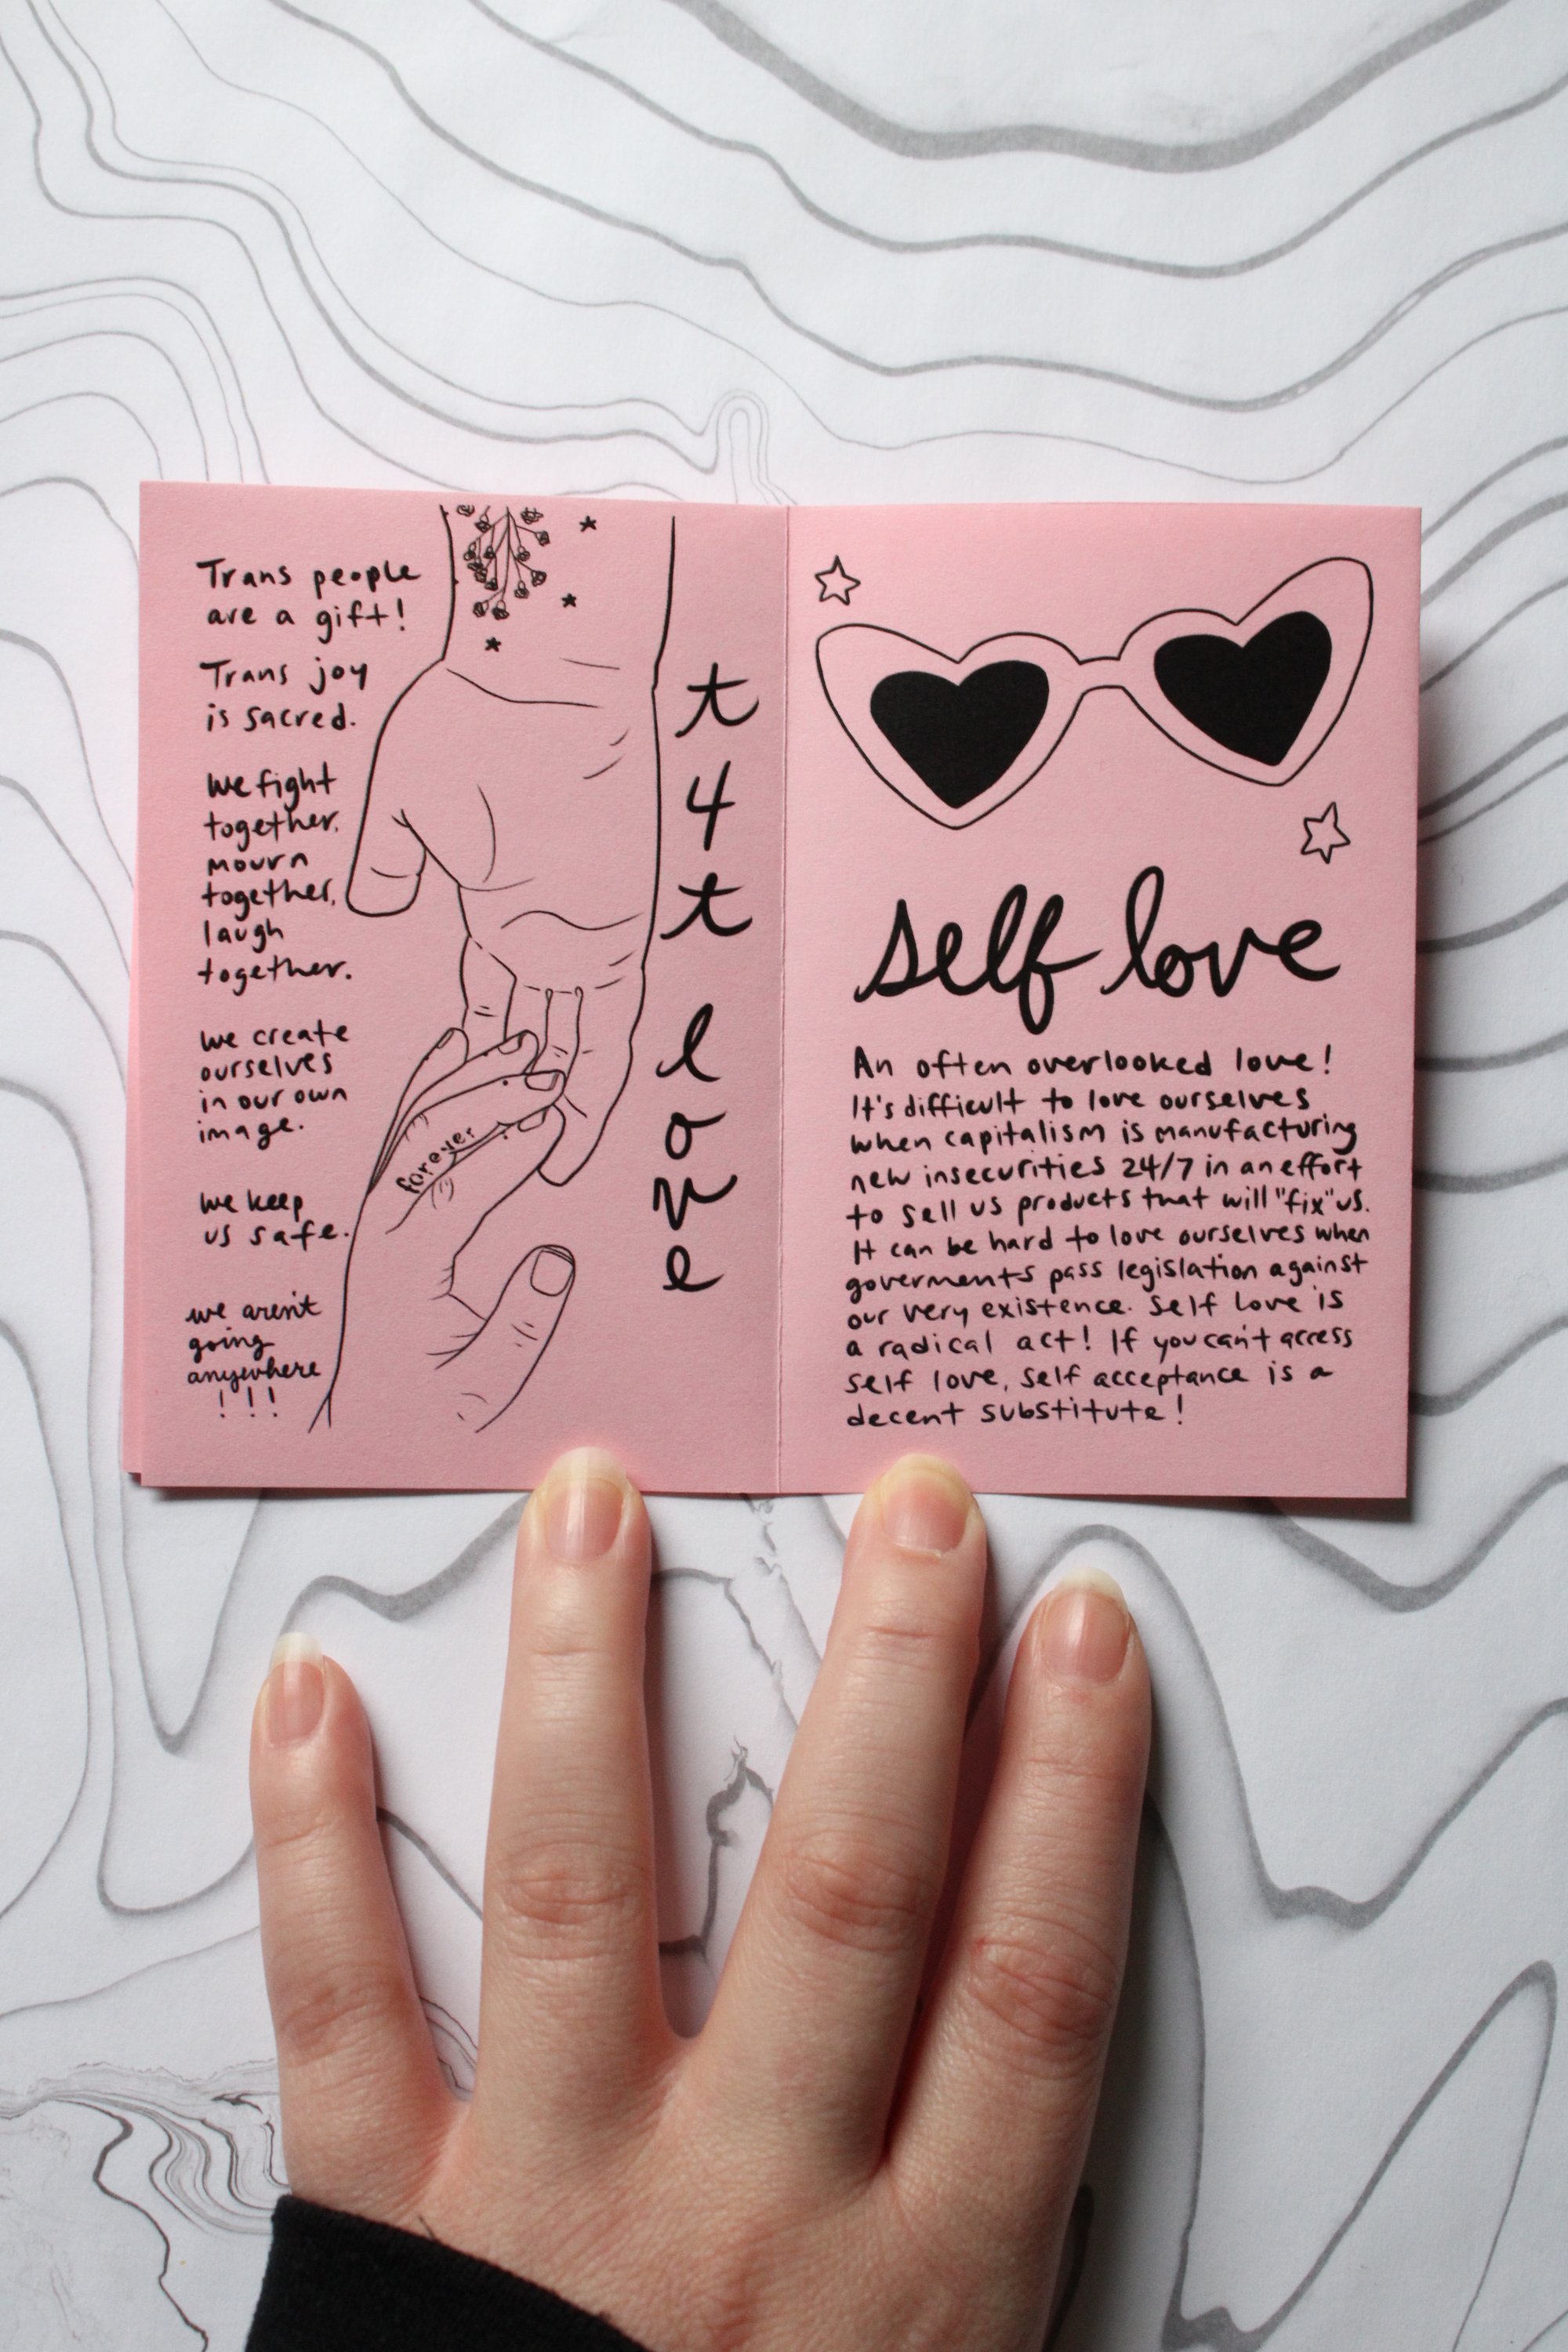 Trans people
are a gift!
Trans joy
is sacred.
We fight
together,
mourn
together,
laugh
together.
We create
ourselves
in our own
image.
We keep
us safe.
we aren't
going
anywhere
!!!
forever
t
4
t
l
o
v
e
self love
An often overlooked love!
It's difficult to love ourselves
when capitalism is manufacturing
new insecurities 24/7 in an effort
to sell us products that will "fix" us.
It can be hard to love ourselves when
goverments pass legislation against
our very existence. Self love is
a radical act! If you can't access
self love, self acceptance is a
decent substitute!